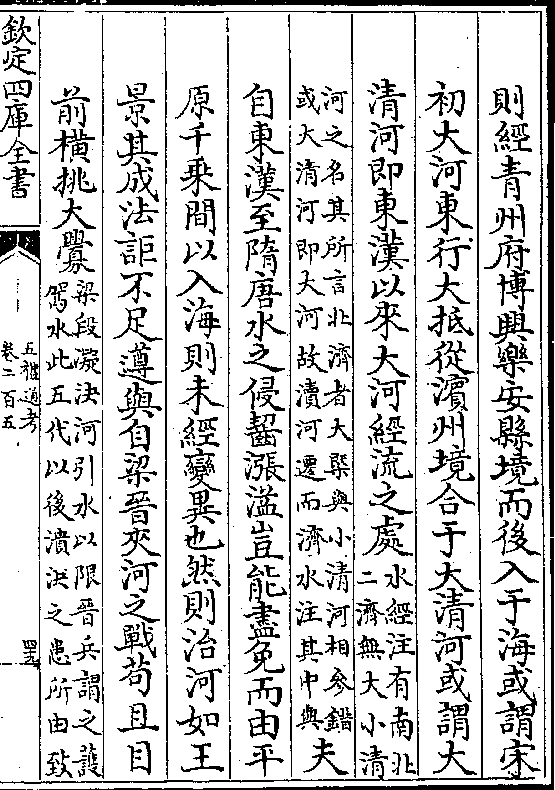 則經青州府博興樂安縣境而後入于海或謂宋
初大河東行大抵從濵州境合于大清河或謂大
清河即東漢以來大河經流之處水經注有南北
二濟無大小清
河之名其所言北濟者大槩與小清河相參錯
或大清河即大河故瀆河遷而濟水注其中與夫
自東漢至隋唐水之侵齧漲溢豈能盡免而由平
原千乘間以入海則未經變異也然則治河如王
景其成法詎不足遵與自梁晉夾河之戰苟且目
前横挑大釁梁段凝決河引水以限晉兵謂之護
駕水此五代以後潰決之患所由致
欽定四庫全書
五禮通考
卷二百五